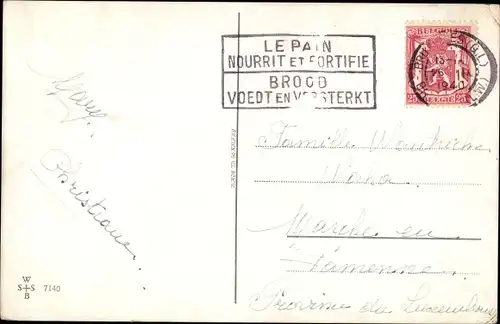 LE PAIN
NOURRIT ET FORTIFIE
BROOD
VOEDT EN VERSTERKT
BELGIQUE
1940
25 BELGIË 25
Mary.
Christiane.
Famille
Waha
Marche en
Famenne
Province du Luxembourg
W
S+S
B
7140